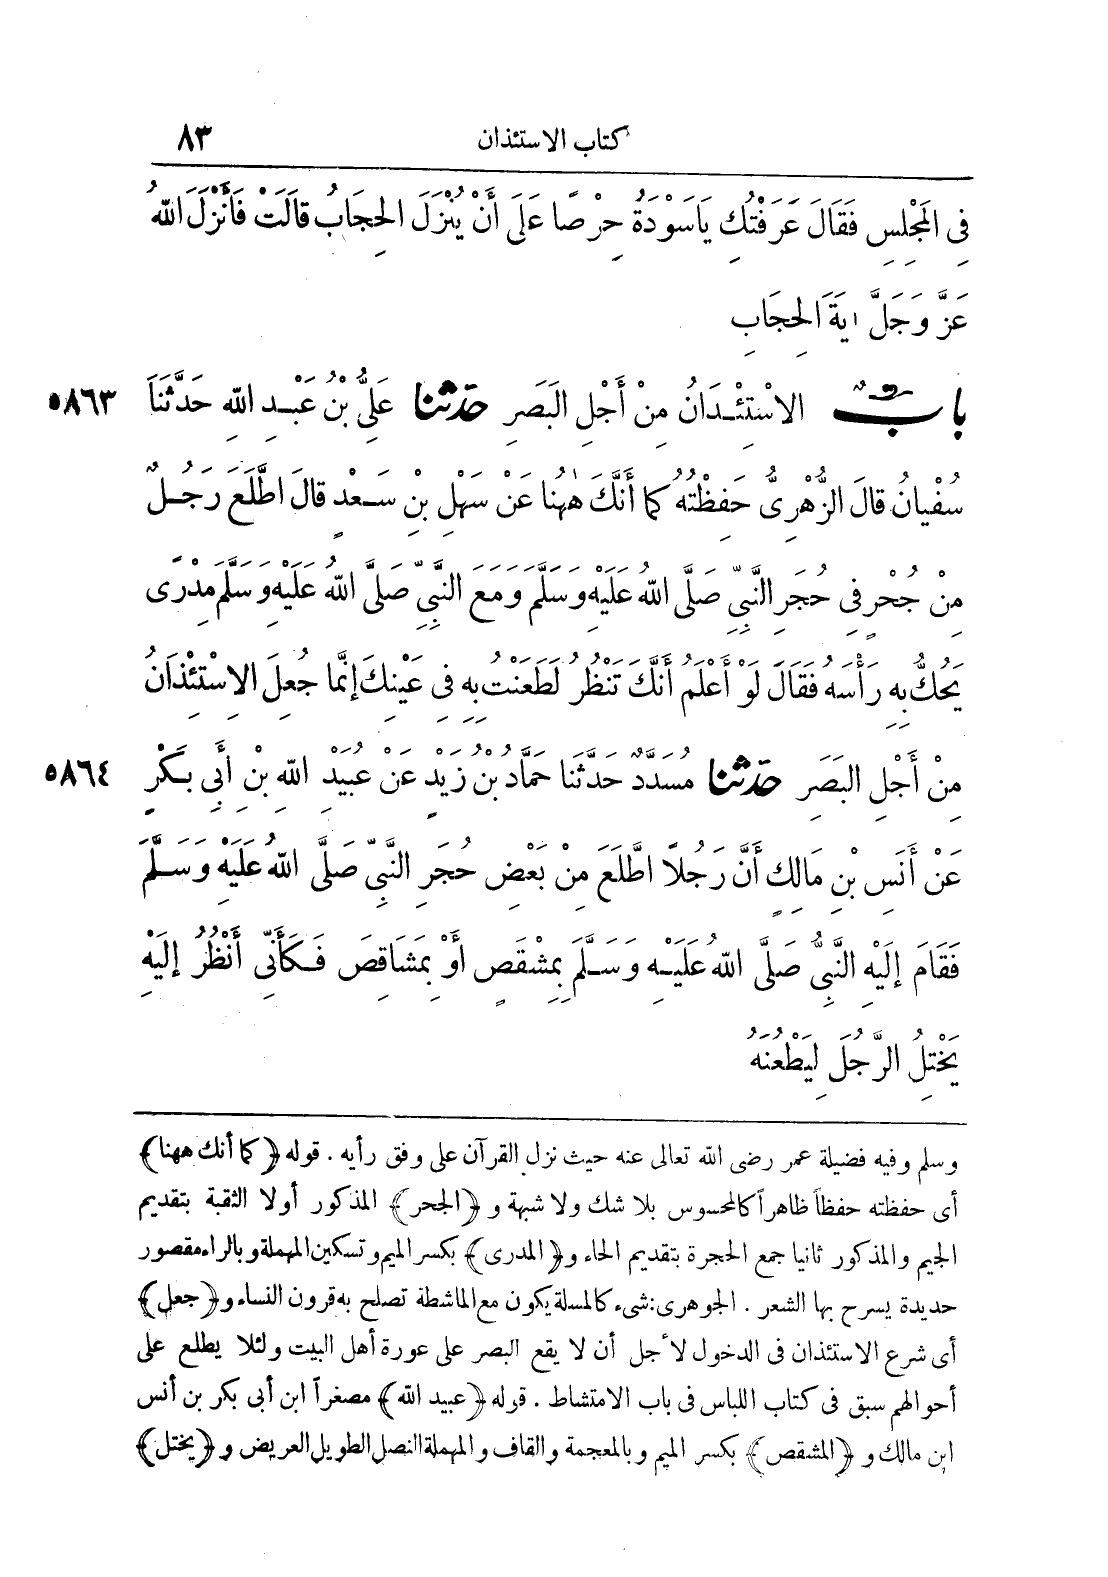 كتاب الاستئذان ٨٣
فِي الْمَجْلِسِ فَقَالَ عَرَفْتُكِ يَاسَوْدَةُ حِرْصًا عَلَى أَنْ يُنْزَلَ الْحِجَابُ قَالَتْ فَأَنْزَلَ اللهُ
عَزَّ وَجَلَّ ايَةَ الْحِجَابِ
بابٌ الاسْتِئْذَانُ مِنْ أَجْلِ الْبَصَرِ حدثنا عَلِيُّ بْنُ عَبْدِ اللهِ حَدَّثَنَا ٥٨٦٣
سُفْيَانُ قَالَ الزُّهْرِىُّ حَفِظْتُهُ كَمَا أَنَّكَ هٰهُنَا عَنْ سَهْلِ بْنِ سَعْدٍ قَالَ اطَّلَعَ رَجُلٌ
مِنْ جُحْرٍ فِى حُجَرِ النَّبِىِّ صَلَّى اللهُ عَلَيْهِ وَسَلَّمَ وَمَعَ النَّبِىِّ صَلَّى اللهُ عَلَيْهِ وَسَلَّمَ مِدْرًى
يَحُكُّ بِهِ رَأْسَهُ فَقَالَ لَوْ أَعْلَمُ أَنَّكَ تَنْظُرُ لَطَعَنْتُ بِهِ فِى عَيْنِكَ إِنَّمَا جُعِلَ الاسْتِئْذَانُ
مِنْ أَجْلِ الْبَصَرِ حدثنا مُسَدَّدٌ حَدَّثَنَا حَمَّادُ بْنُ زَيْدٍ عَنْ عُبَيْدِ اللهِ بْنِ أَبِى بَكْرٍ ٥٨٦٤
عَنْ أَنَسِ بْنِ مَالِكٍ أَنَّ رَجُلاً اطَّلَعَ مِنْ بَعْضِ حُجَرِ النَّبِىِّ صَلَّى اللهُ عَلَيْهِ وَسَلَّمَ
فَقَامَ إِلَيْهِ النَّبِىُّ صَلَّى اللهُ عَلَيْهِ وَسَلَّمَ بِمِشْقَصٍ أَوْ بِمَشَاقِصَ فَكَأَنِّى أَنْظُرُ إِلَيْهِ
يَخْتِلُ الرَّجُلَ لِيَطْعُنَهُ
وسلم وفيه فضيلة عمر رضى الله تعالى عنه حيث نزل القرآن على وفق رأيه . قوله ﴿كما أنك ههنا﴾
أى حفظته حفظاً ظاهراً كالمحسوس بلا شك ولا شبهة و ﴿الجحر﴾ المذكور أولا الثقبة بتقديم
الجيم والمذكور ثانيا جمع الحجرة بتقديم الحاء و﴿المدرى﴾ بكسر الميم وتسكين المهملة وبالراء مقصور
حديدة يسرح بها الشعر . الجوهرى: شىء كالمسلة يكون مع الماشطة تصلح به قرون النساء و﴿جعل﴾
أى شرع الاستئذان فى الدخول لأجل أن لا يقع البصر على عورة أهل البيت ولئلا يطلع على
أحوالهم سبق فى كتاب اللباس فى باب الامتشاط . قوله ﴿عبيد الله﴾ مصغراً ابن أبى بكر بن أنس
ابن مالك و ﴿المشقص﴾ بكسر الميم وبالمعجمة والقاف والمهملة النصل الطويل العريض و ﴿يختل﴾